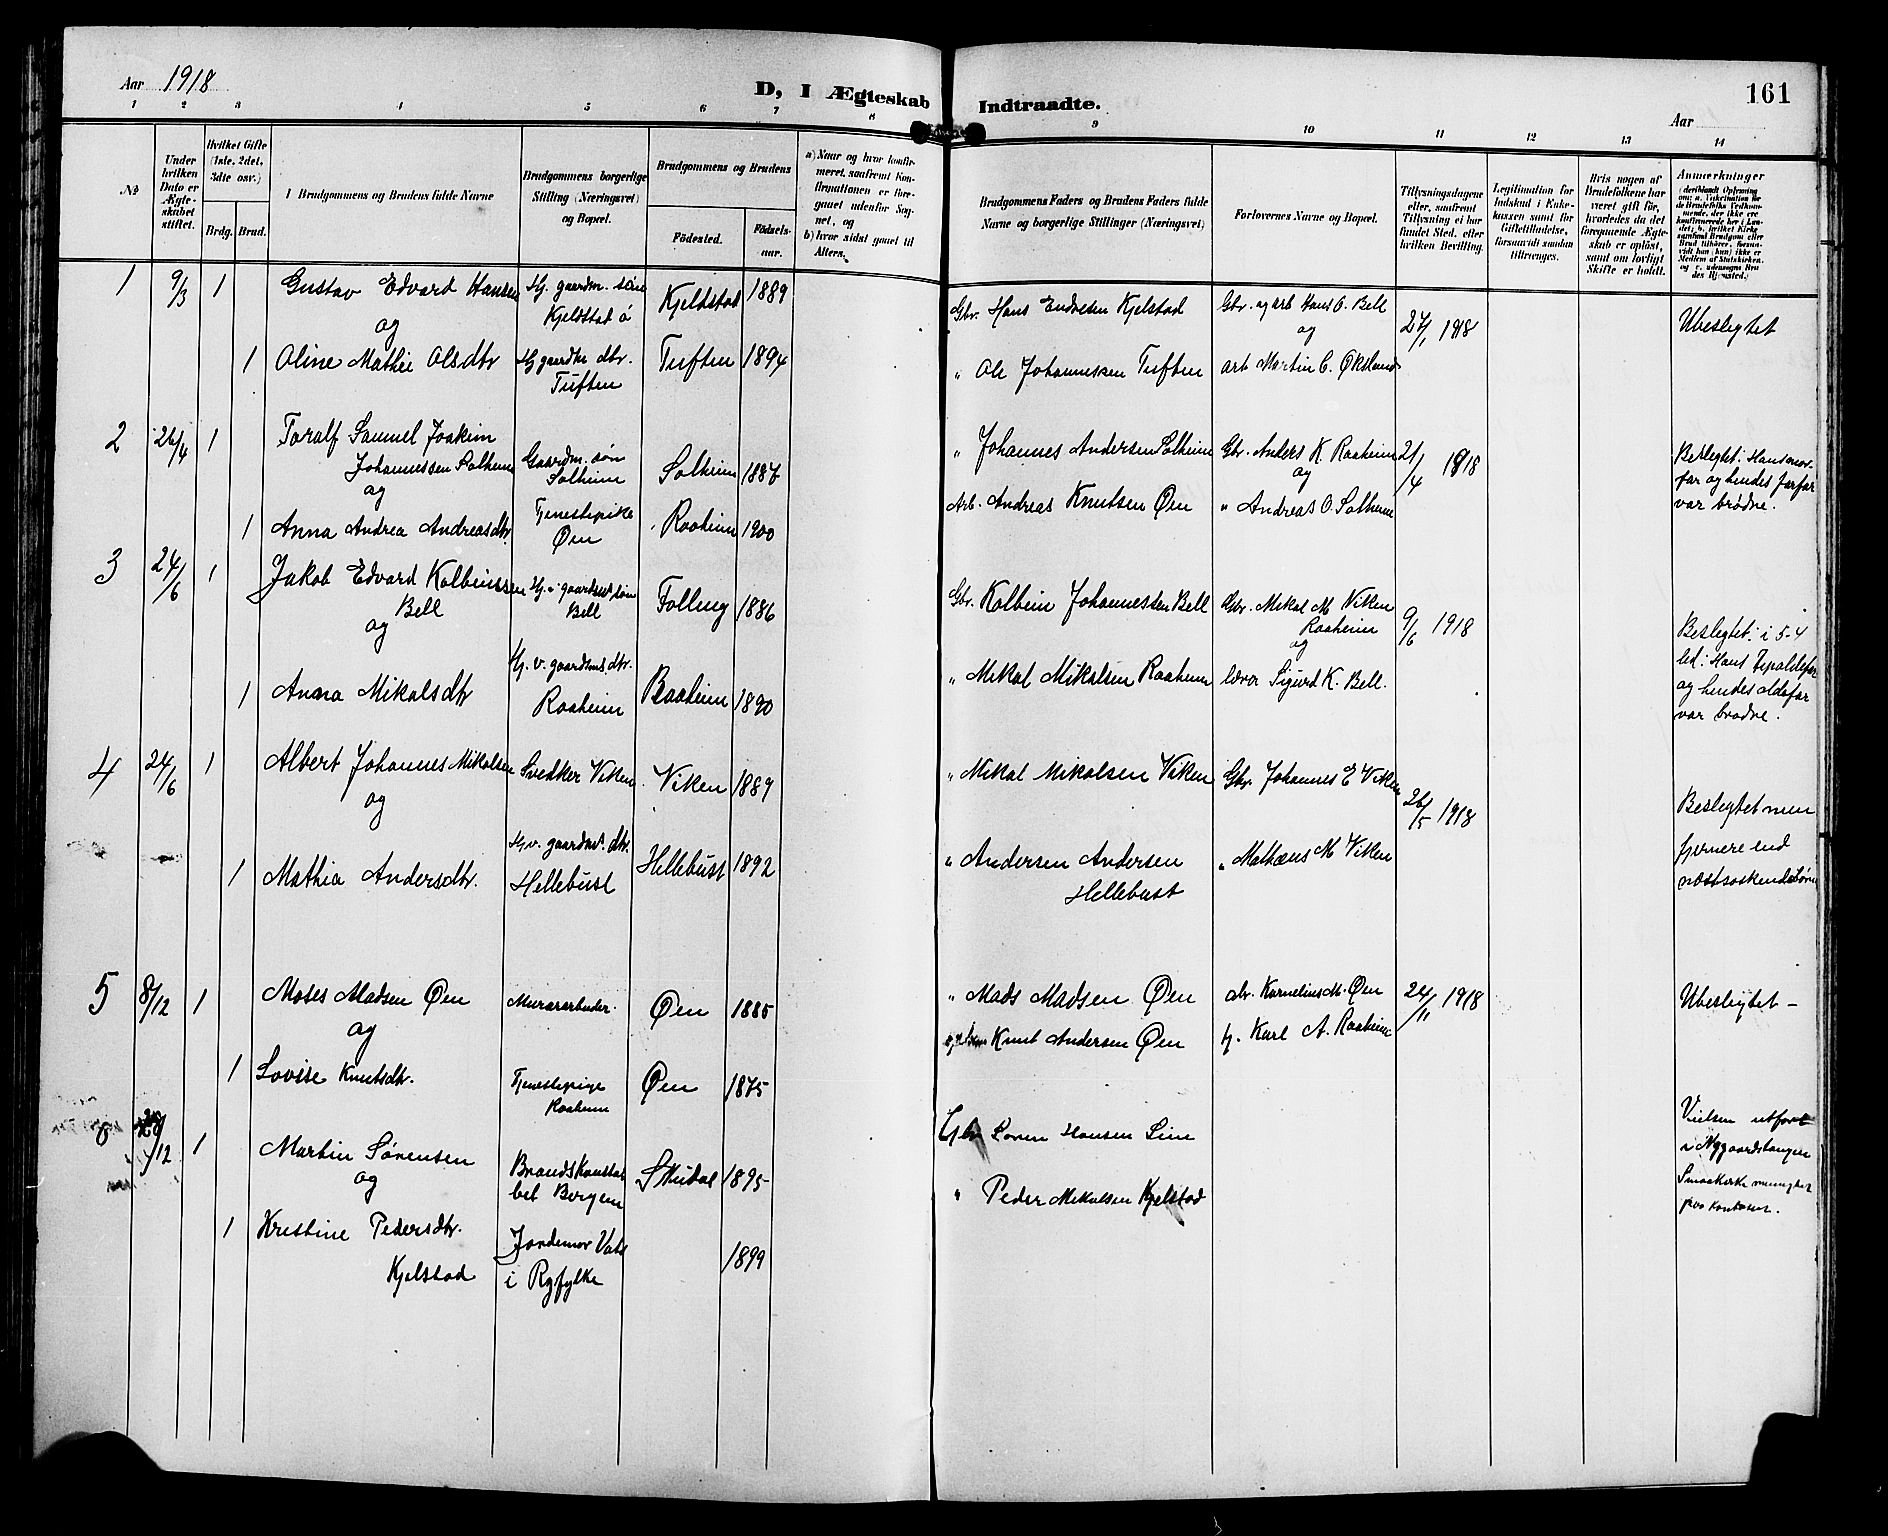 Aar 1918
D, I Ægteskab Indtraadte.
161
Aar
1 2 3 4 5 6 7 8 9 10 11 12 13 14
No
Under hvilken Dato er Ægteskabet stiftet.
Hvilket Gifte (1ste, 2det, 3dte osv.)
Brdg. Brud.
Brudgommens og Brudens fulde Navne
Brudgommens borgerlige Stilling (Næringsvei) og Bopæl.
Brudgommens og Brudens
Födested.
Födselsaar.
a) Naar og hvor konfirmeret, saafremt Konfirmationen er foregaaet udenfor Sognet, og
b) hvor sidst gaaet til Alters.
Brudgommens Faders og Brudens Faders fulde Navne og borgerlige Stillinger (Næringsvei)
Forlovernes Navne og Bopæl.
Tillysningsdagene eller, saafremt Tillysning ei har fundet Sted, efter hvilken Bevilling.
Legitimation for Indskud i Enkekassen samt for Giftetilladelse, forsaavidt saadan tiltrænges.
Hvis nogen af Brudefolkene har været gift før, hvorledes da det foregaaende Ægteskab er opløst, samt om lovligt Skifte er holdt.
Anmærkninger
1 9/3 1 Gustav Edvard Hansen Hj. gaardm. søn Kjeldstad 1889 Gbr. Hans Endresen Kjelstad Gbr. og arb Hans O. Bell 27/1 1918 Ubeslegtet
og Kjeldstad og
1 Oline Mathie Olsdtr Hj gaardm dtr. Tuften 1894 " Ole Johannessen Tuften arb Martin C. Øksland
Tuften
2 26/4 1 Toralf Samuel Joakim Johannessen Solheim Gaardm. søn Solheim Solheim 1887 " Johannes Andersen Solheim Gbr. Anders K. Raaheim 21/4 1918 Beslegtet: Hans morfar og hendes farfar var brødre.
og og
1 Anna Andrea Andreasdtr. Tjenestepike Øen Raaheim 1900 Arb. Andreas Knutsen Øen " Andreas O. Solheim
3 24/6 1 Jakob Edvard Kolbeinssen Bell Hj. v. gaardms. søn Bell Folling 1886 Gbr. Kolbein Johannessen Bell Gbr. Mikal M Viken Raaheim 9/6 1918 Beslegtet: i 5-4 led: Hans tipoldefar og hendes oldefar var brødre.
og og
1 Anna Mikalsdtr Hj. v. gaardms dtr. Raaheim Raaheim 1890 " Mikal Mikalsen Raaheim lærer Sigurd K. Bell.
4 24/6 1 Albert Johannes Mikalsen Snedker Viken Viken 1889 " Mikal Mikalsen Viken Gbr. Johannes E Viken 26/5 1918 Beslegtet men fjernere end næstsøskendebørn
og
1 Mathia Andersdtr. Hj v. gaardms. dtr. Hellebust Hellebust 1892 " Andersen Andersen Hellebust " Mathæus M Viken
5 8/12 1 Moses Madsen Øen Murararbeider. Øen 1885 " Mads Madsen Øen Kornelius M. Øen 24/11 1918 Ubeslegtet -
og
1 Lovise Knutsdtr. Tjenestepige Raaheim Øen 1875 Knut Andersen Øen Karl A. Raaheim
6 28/12 1 Martin Sørensen Brandkonstabel Bergen Skudal 1895 Gbr Søren Hansen Vielsen utført i Nygaardstangen Smaakirke
og
1 Kristine Pedersdtr. Kjelstad Jordemor Vats i Ryfylke 1899 " Peder Mikalsen Kjelstad